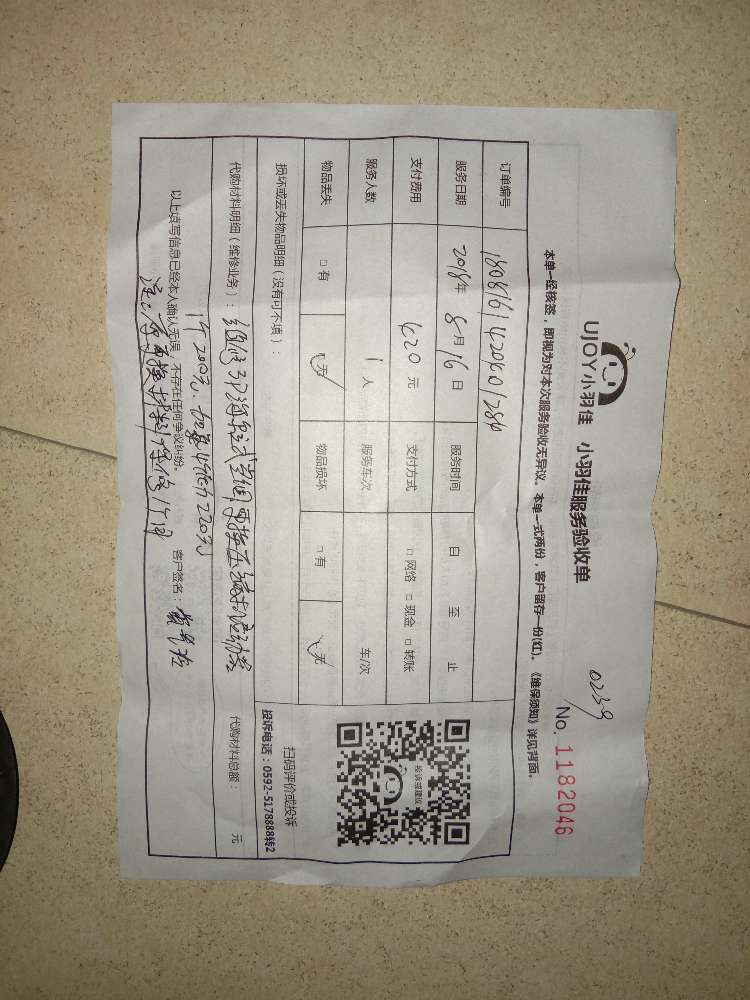 UJOY小羽佳 小羽佳服务验收单
0239
No. 1182046
本单一经核签，即视为对本次服务验收无异议。本单一式两份，客户留存一份(红)。《维保须知》详见背面。
订单编号
服务日期 2018年 8月16日 服务时间 自 至 止
支付费用 420元 支付方式 □网络 □现金 □转账
服务人数 1人 服务车次 车/次
物品丢失 □有 无 物品损坏 □有 无
投诉或建议
扫码评价或投诉
投诉电话：0592-5178888转2
损坏或丢失物品明细（没有可不填）：
代购材料明细（维修业务）：
代购材料总额： 元
1个200元
220元
以上填写信息已经本人确认无误，不存在任何争议纠纷。 客户签名：